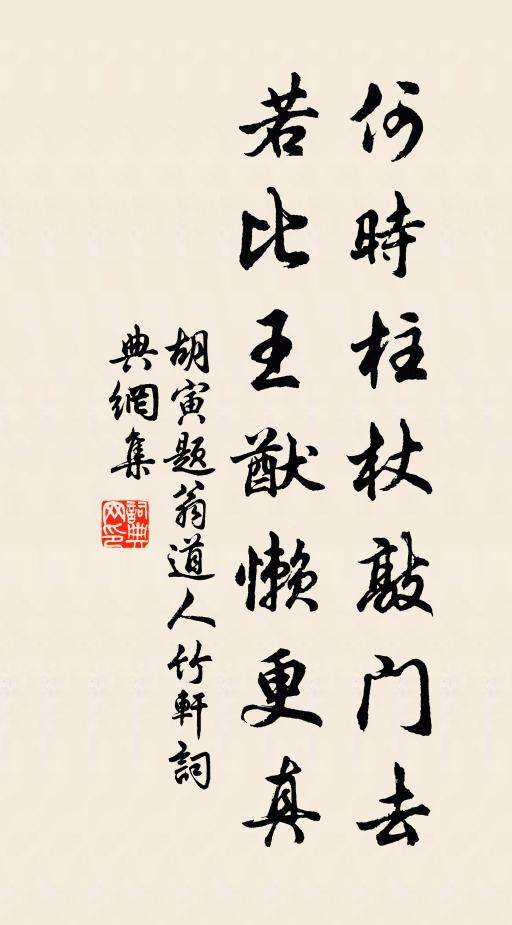 何時柱杖敲門去
若比王猷懶更真
胡寅題翁道人竹軒詞
典網集
詞典网印